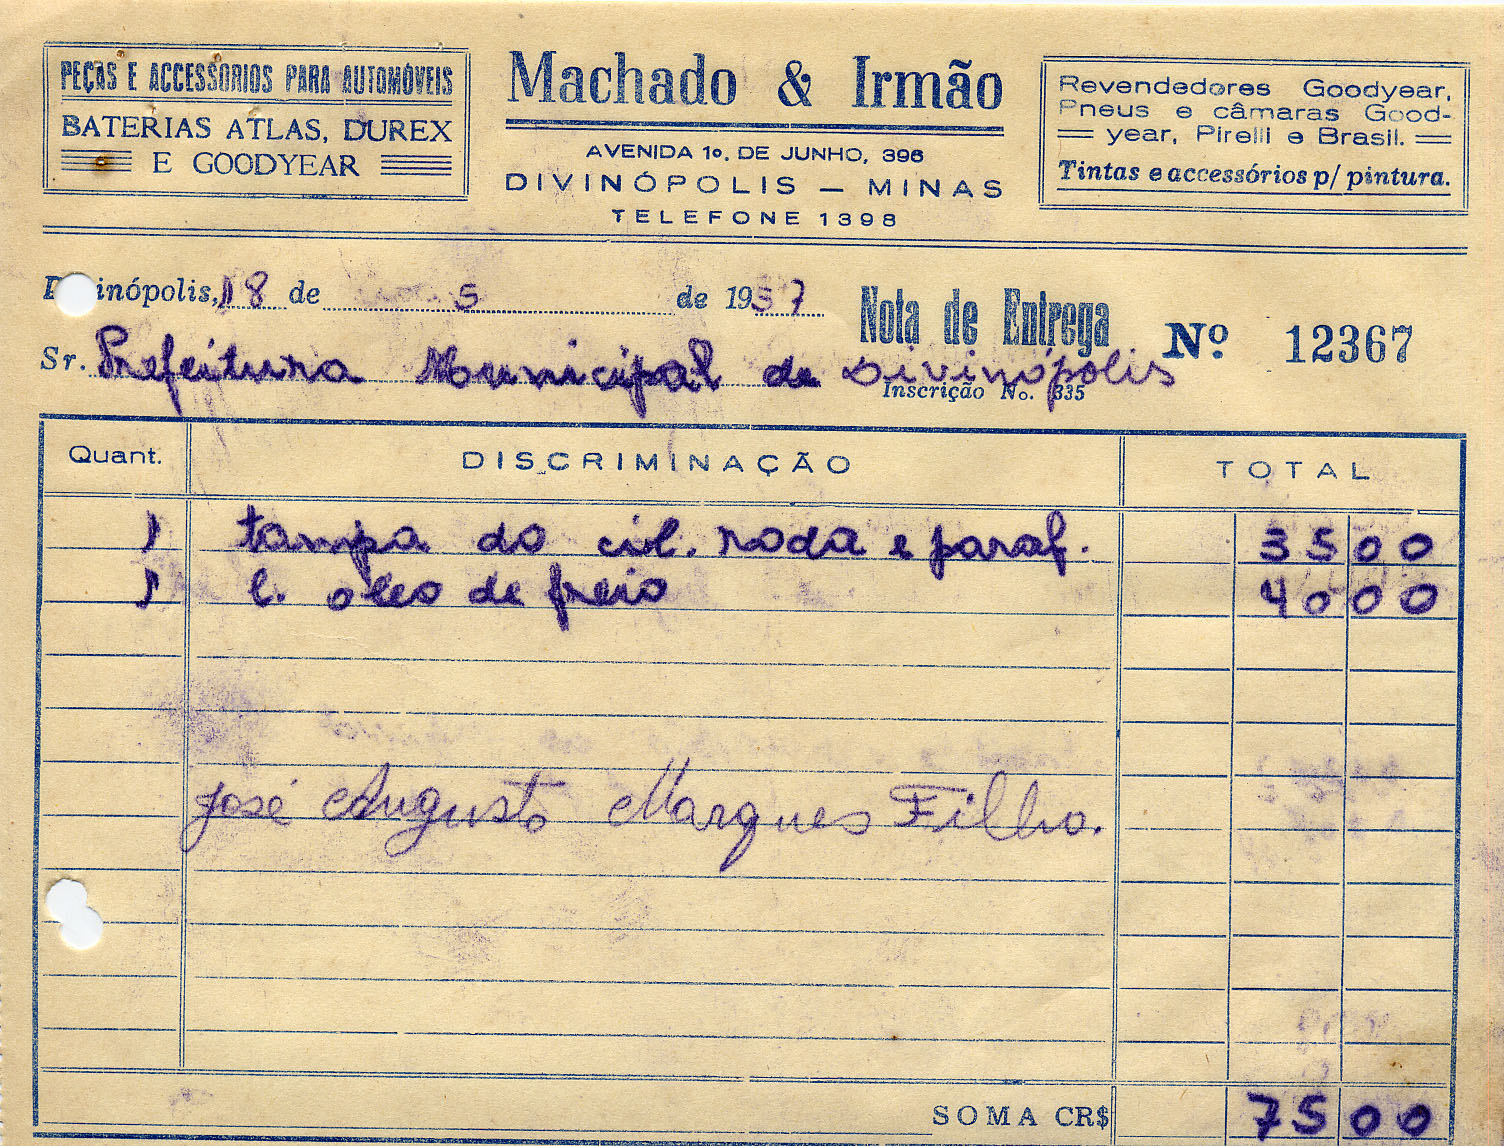 PEÇAS E ACCESSÓRIOS PARA AUTOMÓVEIS
BATERIAS ATLAS, DUREX
E GOODYEAR
Machado & Irmão
AVENIDA 1º. DE JUNHO, 396
DIVINÓPOLIS — MINAS
TELEFONE 1398
Revendedores Goodyear,
Pneus e câmaras Good-
year, Pirelli e Brasil.
Tintas e accessórios p/ pintura.
Divinópolis, 18 de 5 de 1957
Nota de Entrega Nº 12367
Sr. Prefeitura Municipal de Divinópolis
Inscrição No. 335
Quant. DISCRIMINAÇÃO TOTAL
1 tampa do cil. roda e paraf. 35 00
1 l. oleo de freio 40 00
José Augusto Marques Filho.
SOMA CR$ 75 00